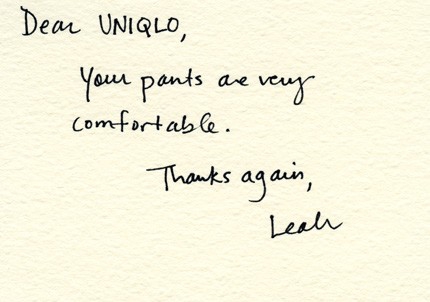 Dear UNIQLO,
Your pants are very
comfortable.
Thanks again,
Leah